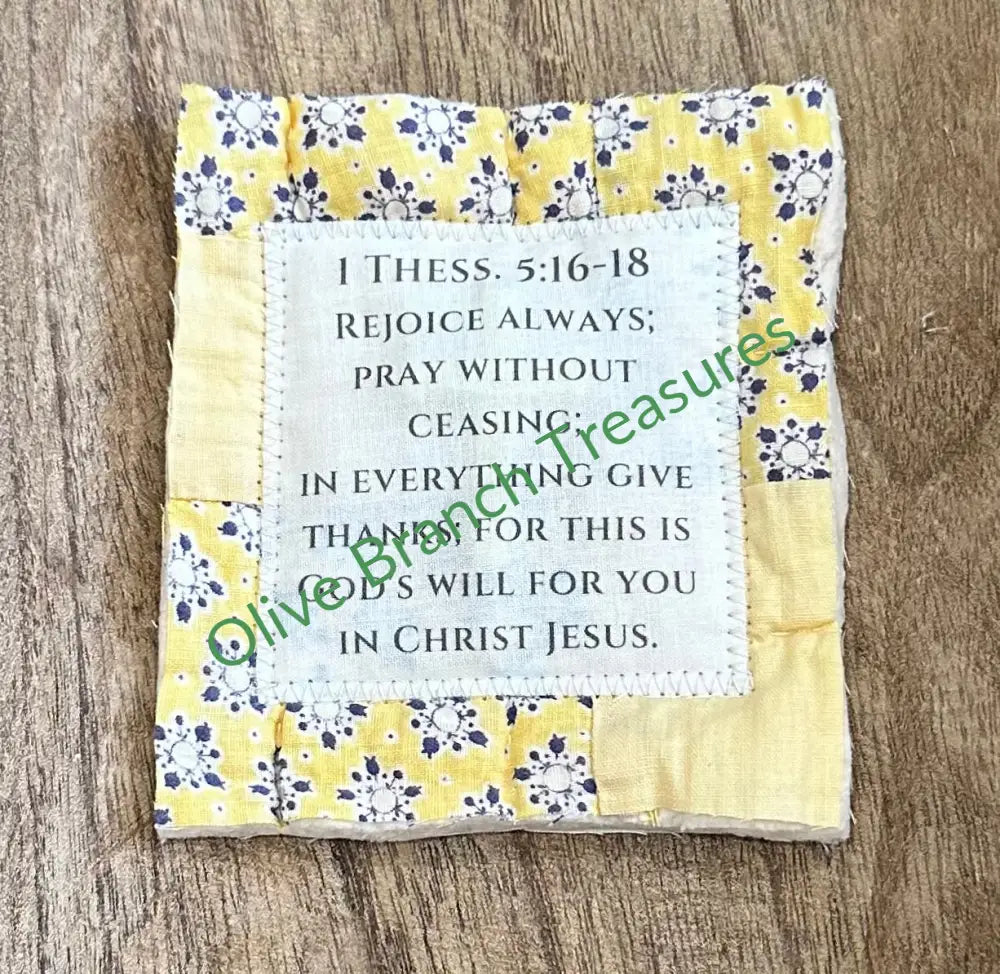 1 Thess. 5:16-18
Rejoice always;
pray without
ceasing;
in everything give
thanks; for this is
God's will for you
in Christ Jesus.
Olive Branch Treasures